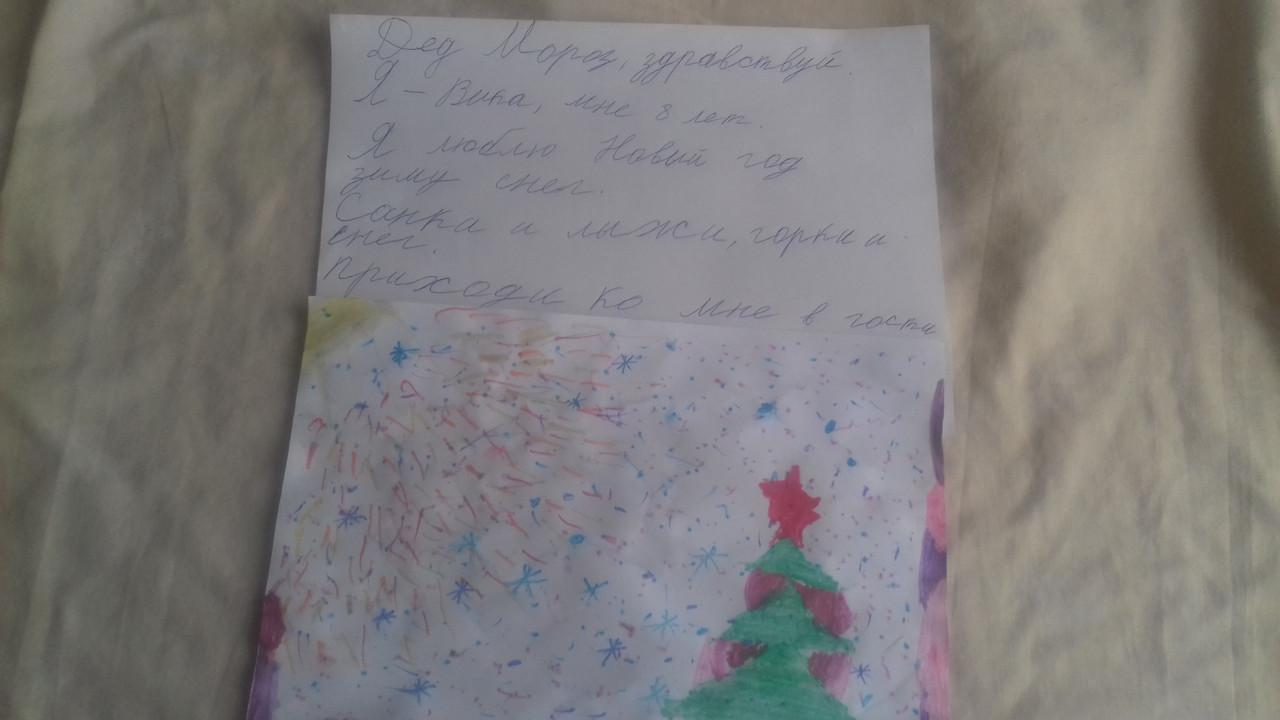 Дед Мороз, здравствуй.
Я – Вика, мне 8 лет.
Я люблю Новый год
зиму снег.
Санка и лыжи, горки и
снег.
Приходи ко мне в гости